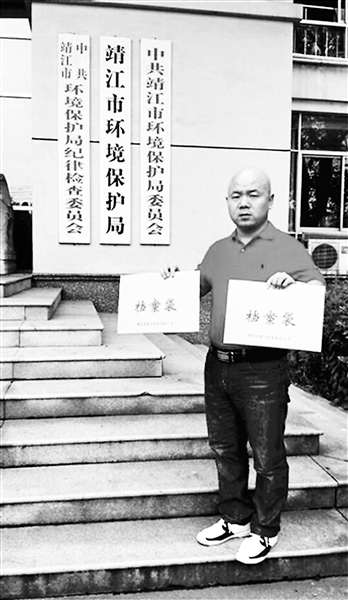 中共
靖江市
环境保护局纪律检查委员会
靖江市环境保护局
中共靖江市环境保护局委员会
档案袋
档案袋